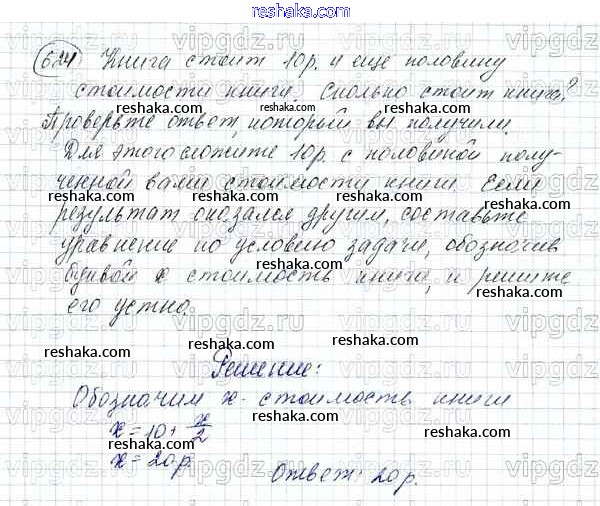 reshaka.com
624 Книга стоит 10р. и еще половину
стоимости книги. Сколько стоит книга?
Проверьте ответ, который вы получили.
Для этого сложите 10р. с половиной полу-
ченной вами стоимости книги. Если
результат оказался другим, составьте
уравнение по условию задачи, обозначив
буквой x стоимость книги, и решите
его устно.
Решение:
Обозначим x - стоимость книги
x=10+x/2
x=20р.
Ответ: 20р.
reshaka.com